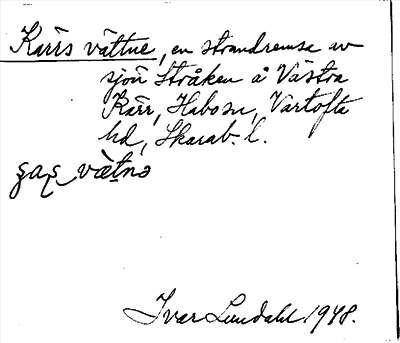 Kärrs vättne, en strandremsa av
sjön Stråken å Västra
Kärr, Habo sn, Vartofta
hd, Skarab. l.
vätnə
Ivar Lundahl 1948.